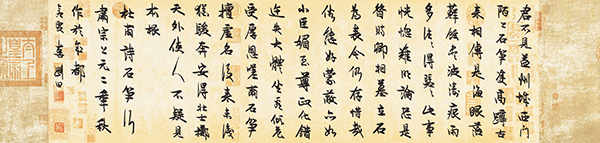 君不見益州城西門
陌上石笋雙高蹲古
來相傳是海眼苔
蘚蝕盡波濤痕雨
多往〻得瑟〻此事
恍惚難明論恐是
昔時卿相墓立石
為表今仍存惜哉
俗態好蒙蔽亦如
小臣媚至尊政化錯
迕失大體坐看傾危
受厚恩嗟爾石笋
擅虛名後來未識
猶駿奔安得壯士擲
天外使人不疑見
本根
杜甫詩石笋行
肅宗上元二年秋
作於成都